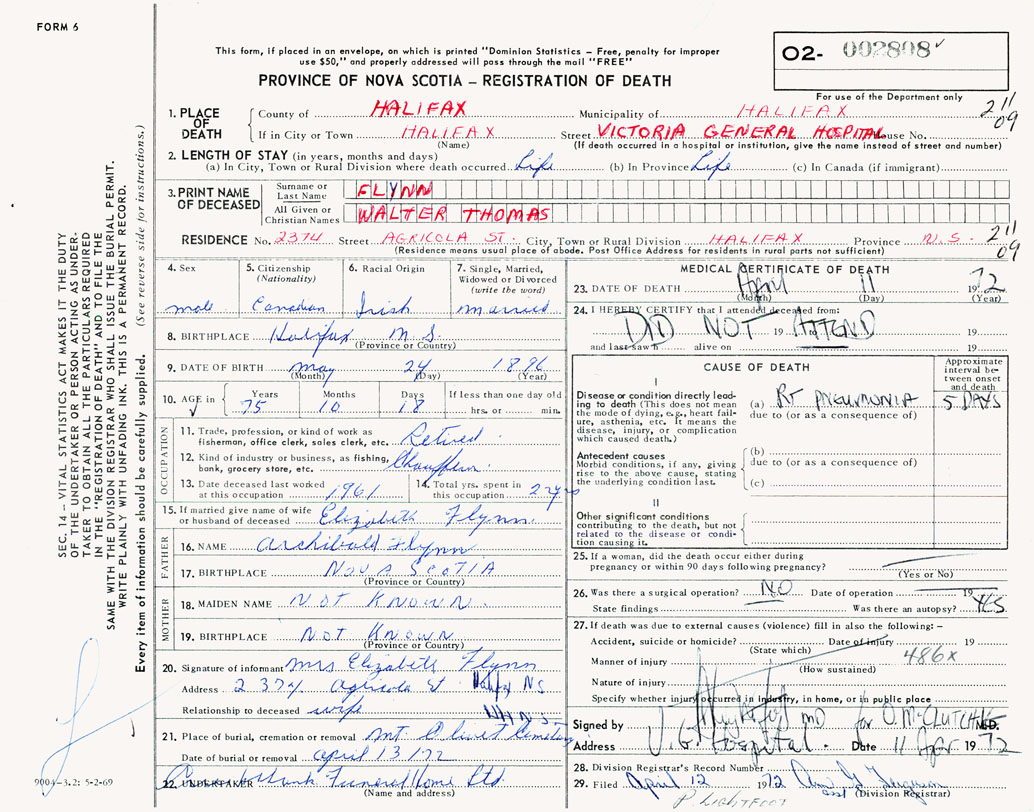 FORM 6
This form, if placed in an envelope, on which is printed "Dominion Statistics – Free, penalty for improper
use $50," and properly addressed will pass through the mail "FREE"
PROVINCE OF NOVA SCOTIA – REGISTRATION OF DEATH
O2- 002808
For use of the Department only
1. PLACE OF DEATH
County of HALIFAX Municipality of HALIFAX
211 09
If in City or Town HALIFAX Street VICTORIA GENERAL HOSPITAL House No.
(Name) (If death occurred in a hospital or institution, give the name instead of street and number)
2. LENGTH OF STAY (in years, months and days)
(a) In City, Town or Rural Division where death occurred Life (b) In Province Life (c) In Canada (if immigrant)
3. PRINT NAME OF DECEASED
Surname or Last Name FLYNN
All Given or Christian Names WALTER THOMAS
RESIDENCE No. 2374 Street AGRICOLA ST. City, Town or Rural Division HALIFAX Province N.S. 211 09
(Residence means usual place of abode. Post Office Address for residents in rural parts not sufficient)
4. Sex
male
5. Citizenship (Nationality)
Canadian
6. Racial Origin
Irish
7. Single, Married, Widowed or Divorced (write the word)
married
8. BIRTHPLACE Halifax N.S.
(Province or Country)
9. DATE OF BIRTH may 24 1896
(Month) (Day) (Year)
10. AGE in Years Months Days If less than one day old
75 10 18 hrs. or min.
OCCUPATION
11. Trade, profession or kind of work as
fisherman, office clerk, sales clerk, etc. Retired.
12. Kind of industry or business, as fishing,
bank, grocery store, etc. Chauffeur.
13. Date deceased last worked
at this occupation 1961
14. Total yrs. spent in
this occupation 2 yrs
15. If married give name of wife
or husband of deceased Elizabeth Flynn.
FATHER
16. NAME Archibald Flynn
17. BIRTHPLACE NOVA SCOTIA
(Province or Country)
MOTHER
18. MAIDEN NAME NOT KNOWN.
19. BIRTHPLACE NOT KNOWN
(Province or Country)
20. Signature of informant Mrs Elizabeth Flynn
Address 2374 Agricola St Halifax NS
Relationship to deceased wife
21. Place of burial, cremation or removal Mt Olivet Cemetery
Date of burial or removal april 13/72
22. UNDERTAKER Funeral Home Ltd.
(Name and address)
MEDICAL CERTIFICATE OF DEATH
23. DATE OF DEATH April 11 1972
(Month) (Day) (Year)
24. I HEREBY CERTIFY that I attended deceased from:
DID NOT 19 ATTEND 19
and last saw h alive on 19
CAUSE OF DEATH
Approximate interval between onset and death
I
Disease or condition directly leading to death (This does not mean the mode of dying, e.g., heart failure, asthenia, etc. It means the disease, injury, or complication which caused death.)
(a) RT PNEUMONIA 5 DAYS
due to (or as a consequence of)
Antecedent causes
Morbid conditions, if any, giving rise to the above cause, stating the underlying condition last.
(b)
due to (or as a consequence of)
(c)
II
Other significant conditions contributing to the death, but not related to the disease or condition causing it.
25. If a woman, did the death occur either during
pregnancy or within 90 days following pregnancy?
(Yes or No)
26. Was there a surgical operation? NO Date of operation 19
State findings Was there an autopsy? YES
27. If death was due to external causes (violence) fill in also the following: –
Accident, suicide or homicide? Date of injury 19
(State which)
486X
Manner of injury
(How sustained)
Nature of injury
Specify whether injury occurred in industry, in home, or in public place
Signed by MD for O. McCLUTCHIE M.D.
Address V.G. Hospital. Date 11 Apr 1972
28. Division Registrar's Record Number
29. Filed April 12 1972
(Division Registrar)
P. LIGHTFOOT
SEC. 14 – VITAL STATISTICS ACT MAKES IT THE DUTY
OF THE UNDERTAKER OR PERSON ACTING AS UNDER-
TAKER TO OBTAIN ALL THE PARTICULARS REQUIRED
IN THE "REGISTRATION OF DEATH" AND TO FILE THE
SAME WITH THE DIVISION REGISTRAR WHO SHALL ISSUE THE BURIAL PERMIT.
WRITE PLAINLY WITH UNFADING INK. THIS IS A PERMANENT RECORD.
Every item of information should be carefully supplied. (See reverse side for instructions.)
9004-3.2: 5-2-69